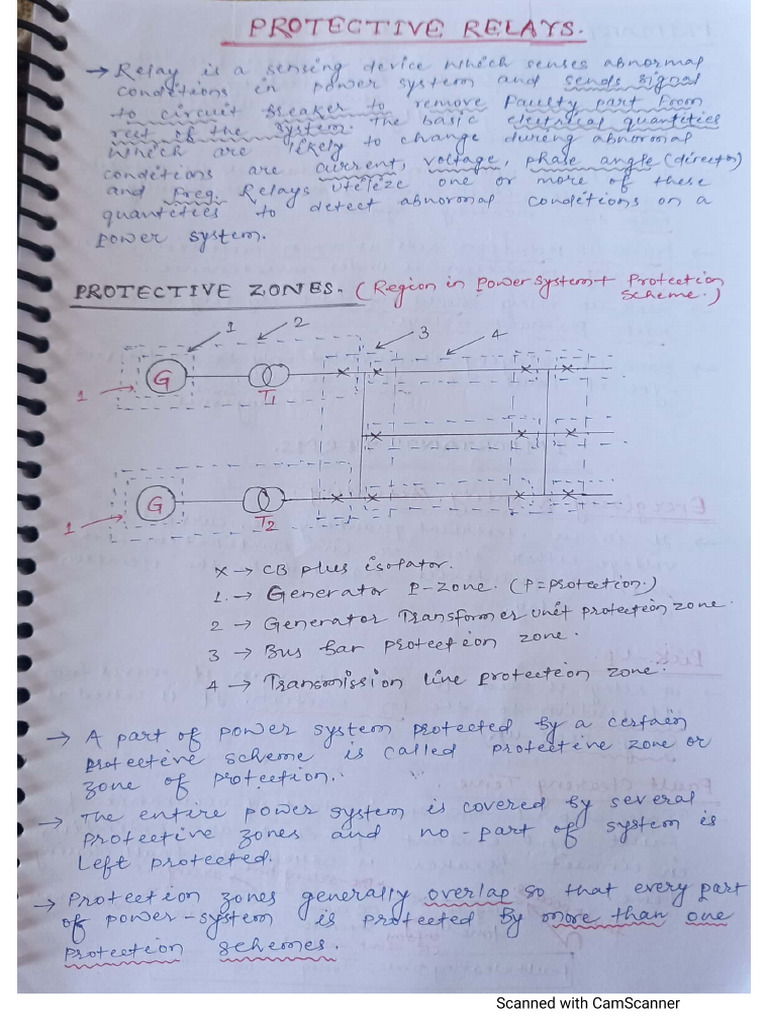 PROTECTIVE RELAYS.
→ Relay is a sensing device which senses abnormal
conditions in power system and sends signal
to circuit breaker to remove Faulty part From
rest of the system. The basic electrical quantities
which are likely to change during abnormal
conditions are current, voltage, phase angle (director)
and freq. Relays uteleze one or more of these
quanteties to detect abnormal conditions on a
power system.
PROTECTIVE ZONES. (Region in power system + Protection
scheme.)
1 2 3 4
1 G T1
1 G T2
x → CB plus isolator.
1. → Generator P-zone. (P=protection.)
2 → Generator Transformer unit protection zone.
3 → Bus bar protection zone.
4 → Transmission line protection zone.
→ A part of power system protected by a certain
protective scheme is called protective zone or
zone of protection.
→ The entire power system is covered by several
protective zones and no-part of system is
left protected.
→ Protection zones generally overlap so that every part
of power-system is protected by more than one
protection schemes.
Scanned with CamScanner